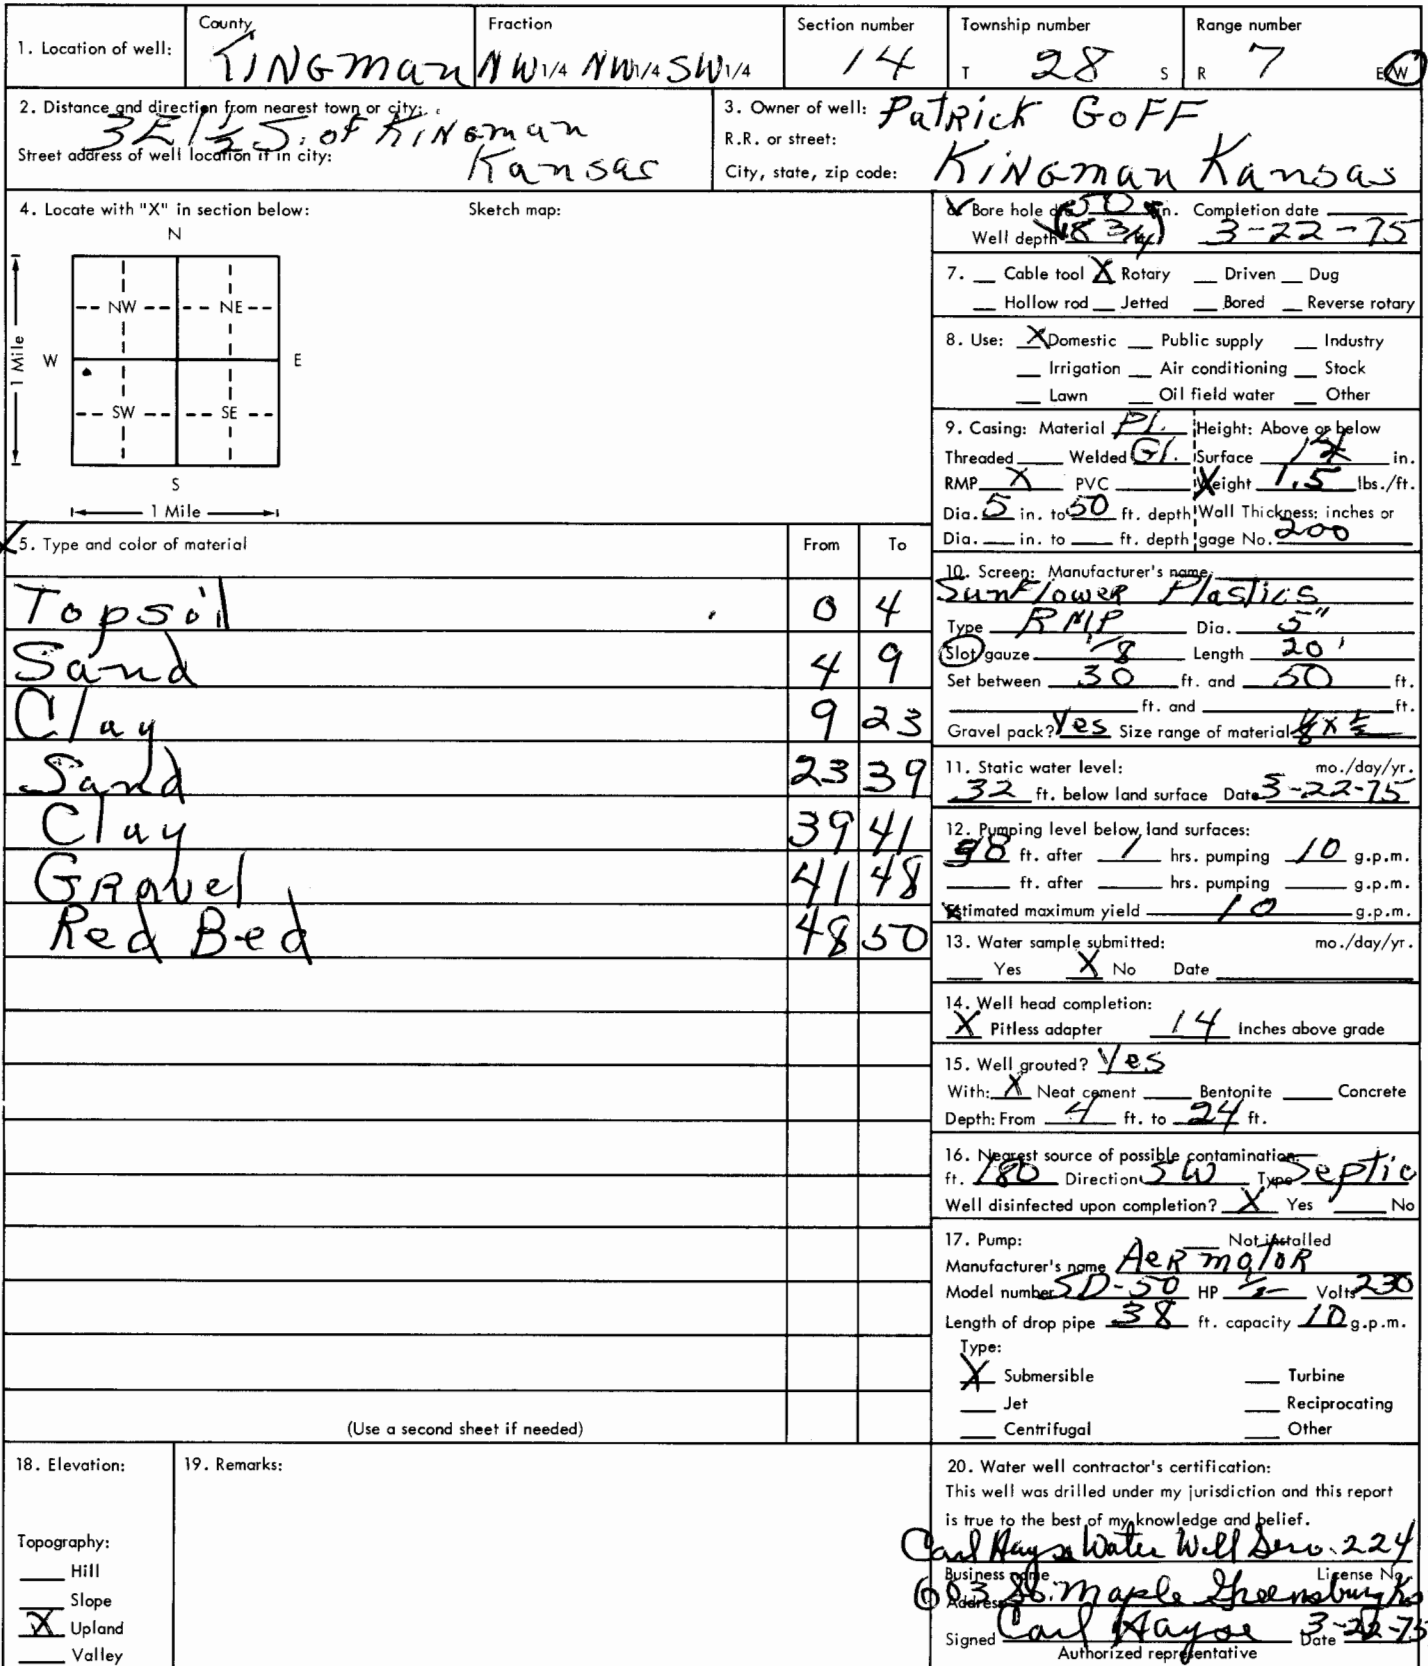 1. Location of well: County Kingman Fraction NW 1/4 NW 1/4 SW 1/4 Section number 14 Township number T 28 S Range number R 7 E/W
2. Distance and direction from nearest town or city: 3E 1 1/2 S. of Kingman
Street address of well location if in city: Kansas
3. Owner of well: Patrick Goff
R.R. or street:
City, state, zip code: Kingman Kansas
4. Locate with "X" in section below: Sketch map:
N
NW NE
W E
1 Mile
SW SE
S
1 Mile
5. Type and color of material From To
Topsoil 0 4
Sand 4 9
Clay 9 23
Sand 23 39
Clay 39 41
Gravel 41 48
Red Bed 48 50
(Use a second sheet if needed)
6. Bore hole dia. 50 in. Completion date
Well depth 8 3/4 3-22-75
7. Cable tool X Rotary Driven Dug
Hollow rod Jetted Bored Reverse rotary
8. Use: X Domestic Public supply Industry
Irrigation Air conditioning Stock
Lawn Oil field water Other
9. Casing: Material Pl. Height: Above or below
Threaded Welded Gl. Surface in.
RMP X PVC Weight 1.5 lbs./ft.
Dia. 5 in. to 50 ft. depth Wall Thickness: inches or
Dia. in. to ft. depth gage No. 200
10. Screen: Manufacturer's name
Sunflower Plastics
Type RMP Dia. 5"
Slot/gauze 1/8 Length 20'
Set between 30 ft. and 50 ft.
ft. and ft.
Gravel pack? Yes Size range of material
11. Static water level: mo./day/yr.
32 ft. below land surface Date 3-22-75
12. Pumping level below land surfaces:
ft. after 1 hrs. pumping 10 g.p.m.
ft. after hrs. pumping g.p.m.
Estimated maximum yield 10 g.p.m.
13. Water sample submitted: mo./day/yr.
Yes X No Date
14. Well head completion:
X Pitless adapter 14 Inches above grade
15. Well grouted? Yes
With: X Neat cement Bentonite Concrete
Depth: From 4 ft. to 24 ft.
16. Nearest source of possible contamination:
ft. 180 Direction SW Type Septic
Well disinfected upon completion? X Yes No
17. Pump: Not installed
Manufacturer's name Aermotor
Model number SD-50 HP 1/2 Volts 230
Length of drop pipe 38 ft. capacity 10 g.p.m.
Type:
X Submersible Turbine
Jet Reciprocating
Centrifugal Other
18. Elevation:
Topography:
Hill
Slope
X Upland
Valley
19. Remarks:
20. Water well contractor's certification:
This well was drilled under my jurisdiction and this report
is true to the best of my knowledge and belief.
Carl Hayse Water Well Serv. 224
Business name License No.
603 So. Maple Greensburg Ks
Address
Signed Carl Hayse Date 3-22-75
Authorized representative